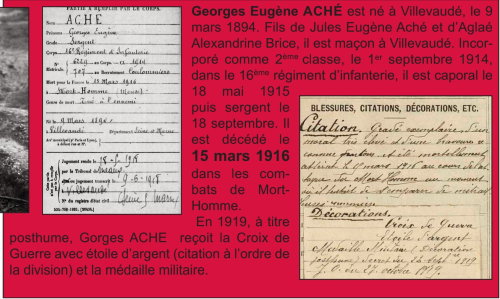 PARTIE À REMPLIR PAR LE CORPS.
Nom ACHÉ
Prénoms Georges Eugène
Grade Sergent
Corps 16e Régiment d'Infanterie
Matricule
6229 au Corps. — Cl. 1914
707 au Recrutement Coulommiers
Mort pour la France le 15 Mars 1916
à Mort-Homme (Meuse)
Genre de mort tué à l'ennemi
Né le 9 Mars 1894
à Villevaudé Département Seine et Marne
Jugement rendu le 18-5-1918
par le Tribunal de
jugement transcrit le 9-6-1918
à Villevaudé
N° du registre d'état civil
Georges Eugène ACHÉ est né à Villevaudé, le 9
mars 1894. Fils de Jules Eugène Aché et d'Aglaé
Alexandrine Brice, il est maçon à Villevaudé. Incor-
poré comme 2ème classe, le 1er septembre 1914,
dans le 16ème régiment d'infanterie, il est caporal le
18 mai 1915
puis sergent le
18 septembre. Il
est décédé le
15 mars 1916
dans les com-
bats de Mort-
Homme.
En 1919, à titre
posthume, Gorges ACHE reçoit la Croix de
Guerre avec étoile d'argent (citation à l'ordre de
la division) et la médaille militaire.
BLESSURES, CITATIONS, DÉCORATIONS, ETC.
Citation. Gradé exemplaire, d'un
moral très élevé et d'une bravoure
connue. A été mortellement
atteint le 15 mars 1916 au cours de l'at
taque du Mort Homme au moment
où il de s'emparer de
Décorations.
Croix de Guerre
Étoile d'argent
Médaille Militaire (Décoration
posthume) 1919
J. O. du 27 octobre 1919.